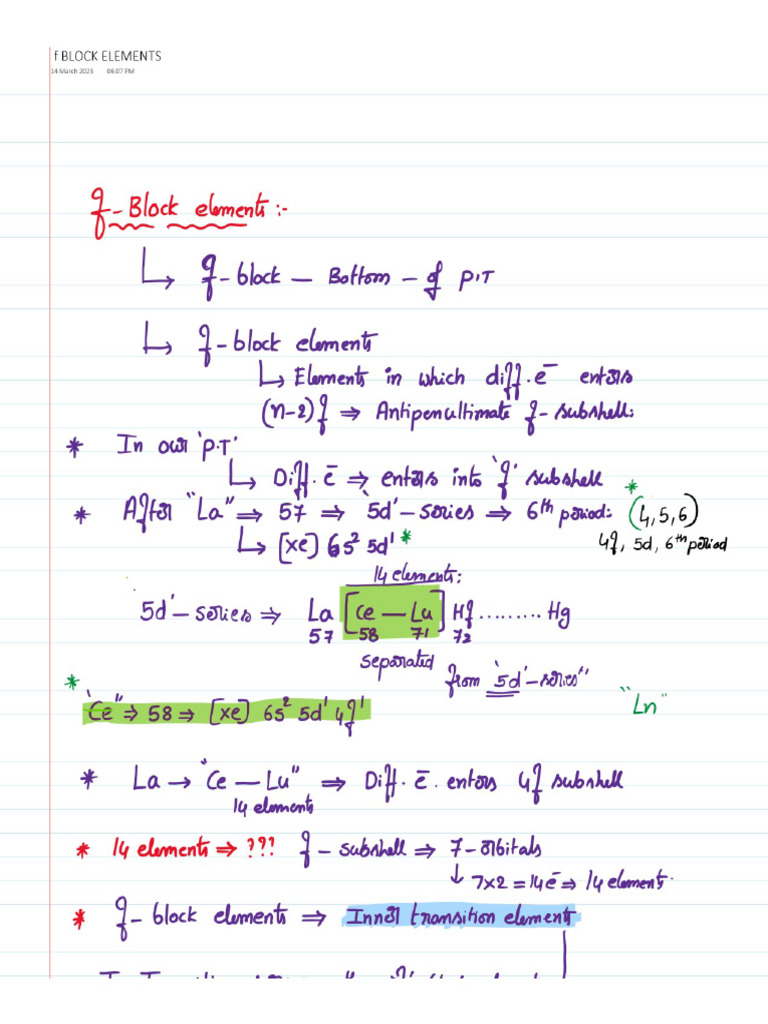 f BLOCK ELEMENTS
14 March 2023 06:07 PM
f-Block elements :-
↳ f-block — Bottom — of P.T
↳ f-block elements
↳ Elements in which diff. e⁻ enters
(n-2) f ⇒ Antipenultimate f-subshell:
* In our 'P.T'
↳ Diff. e⁻ ⇒ enters into 'f' subshell
* After "La" ⇒ 57 ⇒ '5d'-series ⇒ 6th period: (4,5,6) *
↳ [xe] 6s² 5d¹ * 4f, 5d, 6th period
14 elements:
5d'-series ⇒ La [Ce — Lu] Hf ......... Hg
57 58 71 72
separated from '5d'-series"
*
"Ce" ⇒ 58 ⇒ [xe] 6s² 5d¹ 4f¹ "Ln"
* La → "Ce — Lu" ⇒ Diff. e⁻. enters 4f subshell
14 elements
* 14 elements ⇒ ??? f-subshell ⇒ 7-orbitals
↓ 7×2 = 14e⁻ ⇒ 14 elements.
* f-block elements ⇒ Inner transition elements